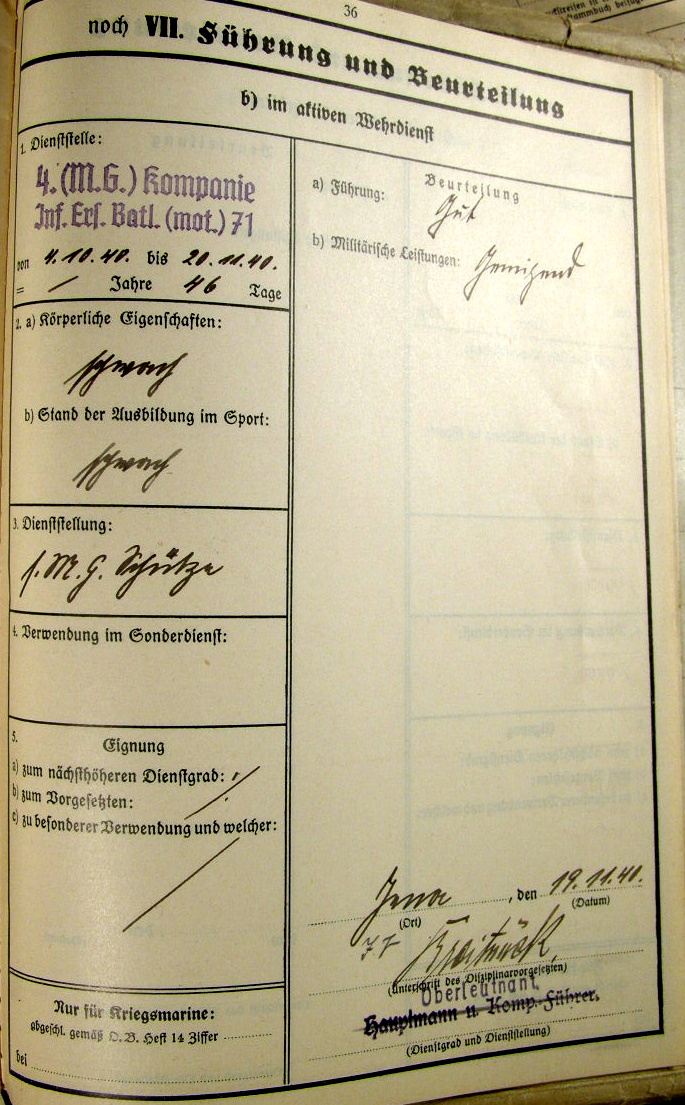 36
noch VII. Führung und Beurteilung
b) im aktiven Wehrdienst
1. Dienststelle:
4. (M.G.) Kompanie
Inf. Ers. Batl. (mot.) 71
von 4.10.40. bis 20.11.40.
= / Jahre 46 Tage
2. a) Körperliche Eigenschaften:
schwach
b) Stand der Ausbildung im Sport:
schwach
3. Dienststellung:
s. M. G. Schütze
4. Verwendung im Sonderdienst:
5. Eignung
a) zum nächsthöheren Dienstgrad:
b) zum Vorgesetzten:
c) zu besonderer Verwendung und welcher:
Nur für Kriegsmarine:
abgeschl. gemäß D.B. Heft 14 Ziffer
bei
Beurteilung
a) Führung: Gut
b) Militärische Leistungen: Genügend
Jena, den 19.11.40.
(Ort) (Datum)
(Unterschrift des Disziplinarvorgesetzten)
Oberleutnant
Hauptmann u. Komp.-Führer.
(Dienstgrad und Dienststellung)